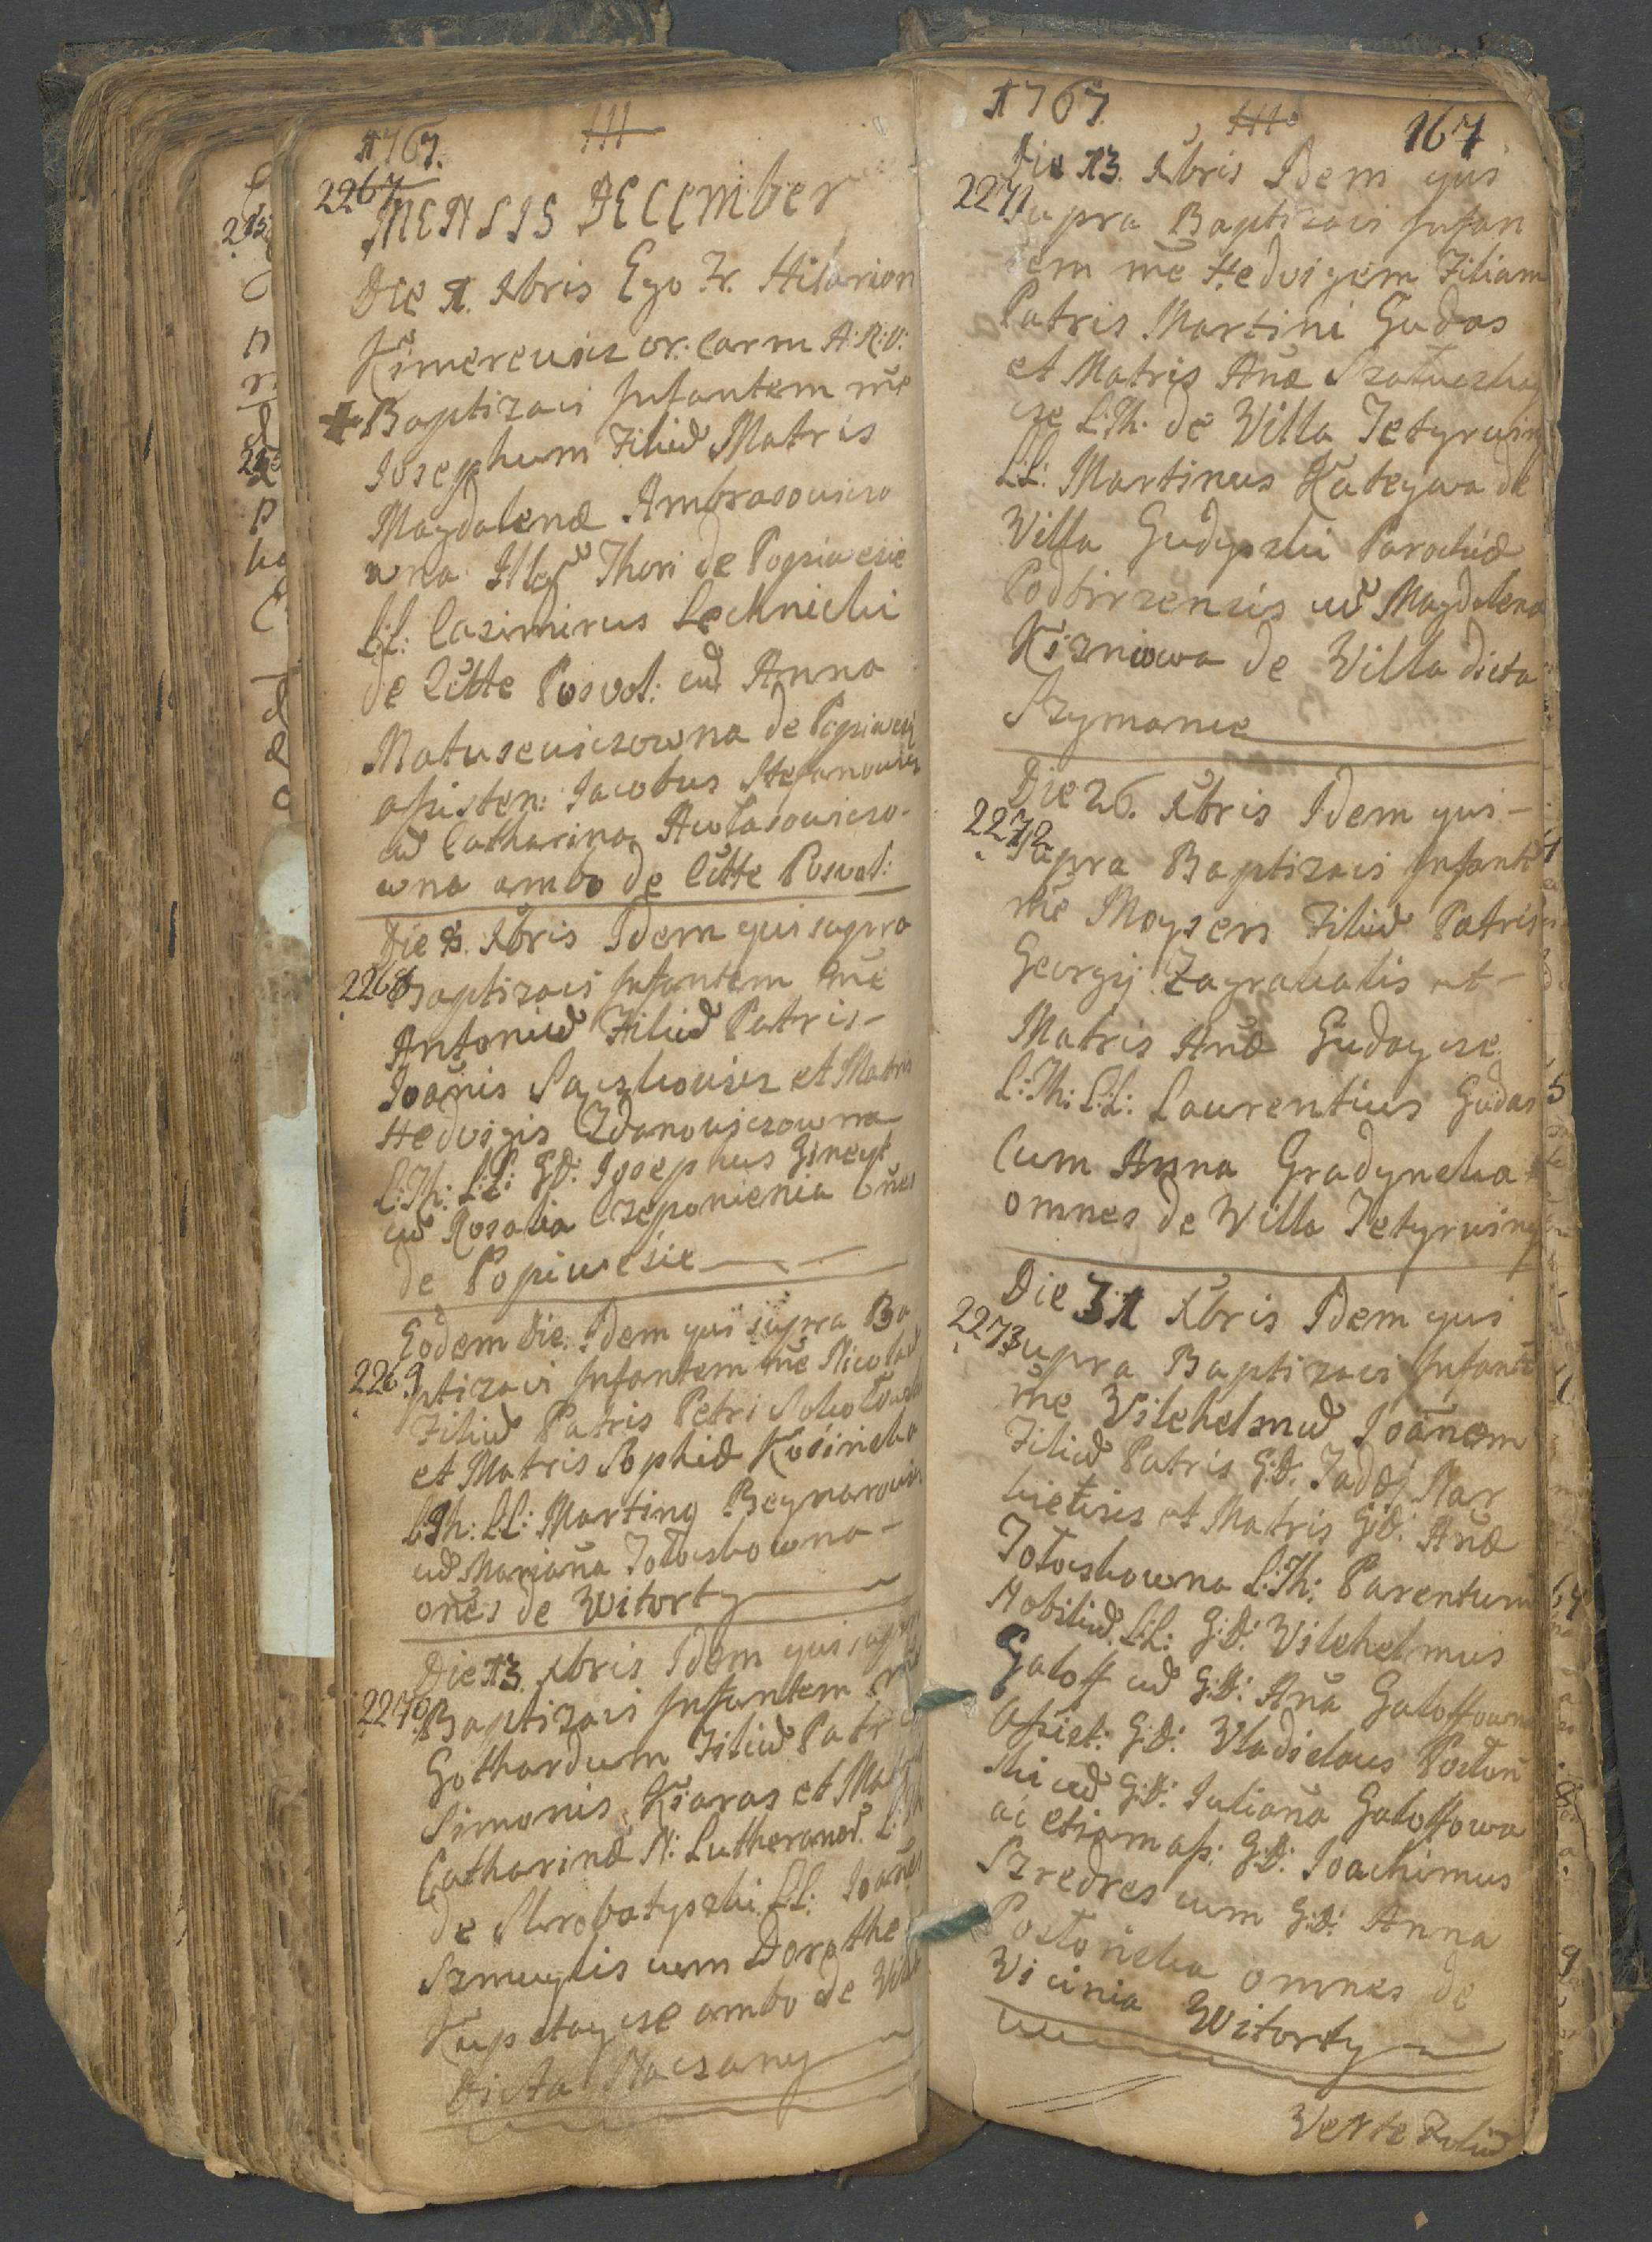 1767.
2267
MENSIS DECEMber
Die 1. Xbris Ego Fr. Hilarion
or: Carm A: R: V:
Baptizavi Infantem nõe
Iosephum Filiũ Matris
Magdalenæ Ambrasowiczo
wna Illeg Thori de Popiwesie
L:L: Casimirus Lechnicki
de Cũtte Posvol: cũ Anna
Matusewiczowna de Popiwesie
aſsisten: Iacobus Stefanowicz
cũ Catharina
wna ambo de Cũtte Posvol:
Die 8. Xbris Idem qui supra
2268
Baptizavi Infantem nõe
Antoniũ Filiũ Patris -
Ioãnis et Matris
Hedvigis Zdanowiczowna
L:Th: L:L: G:D: Iosephus Gineyt
cũ Rosalia Czeponienia oñes
de Popiwesie
Eodem Die Idem qui supra Ba
2269
ptizavi Infantem nõe Nicolaũ
Filiũ Patris Petri
et Matris Sophiæ
L:Th: L:L: Martinq
cũ Mariãna Totoczkowna -
oñes de Witorty
Die 13. Xbris Idem qui supra
2270
Baptizavi Infantem nõe
Gothardum Filiũ Patris
Simonis Kiaras et Matris
Catharinæ N: Lutheranor. L:Th
de Skrobotyszki L:L: Ioañes
Szmuylis cum Dorothea
ambo de Villa
Dicta Naczany
1767.
167
Die 13. Xbris Idem qui
2271
supra Baptizavi Infan
tem nõe Hedvigem Filiam
Patris Martini Gudas
et Matris Añæ
cze L:Th. de Villa Jetyrwiny
L:L: Martinus de
Villa Gudyszki Parochiæ
Podbirzensis cũ Magdalena
Kizniowa de Villa dicta
Szymance
Die 26. Xbris Idem qui -
2272
supra Baptizavi Infantẽ
nõe Moysem Filiũ Patris
Georgij Zagrabalis et -
Matris Añæ Gudaycze
L:Th: L:L: Laurentius Gudas
Cum Anna Gradyncka
omnes de Villa Jetyrwiny
Die 31 Xbris Idem qui
2273
supra Baptizavi Infantẽ
nõe Vilehelmũ Ioãnem
Filiũ Patris G:D: Taddej Nar
kiewicz et Matris G:D: Añæ
Totoczkowna L:Th: Parentum
Nobiliũ. L:L: G:D: Vilehelmus
Galoff cũ G:D: Aña Galoffowna
Aſsist: G:D: Vladislaus Postoń
ski cũ G:D: Iuliãna Galoffowa
ac etiam aſs: G:D: Ioachimus
Szredres cum G:D: Anna
Postońska omnes de
Vicinia Witorty
Verte Foliũ